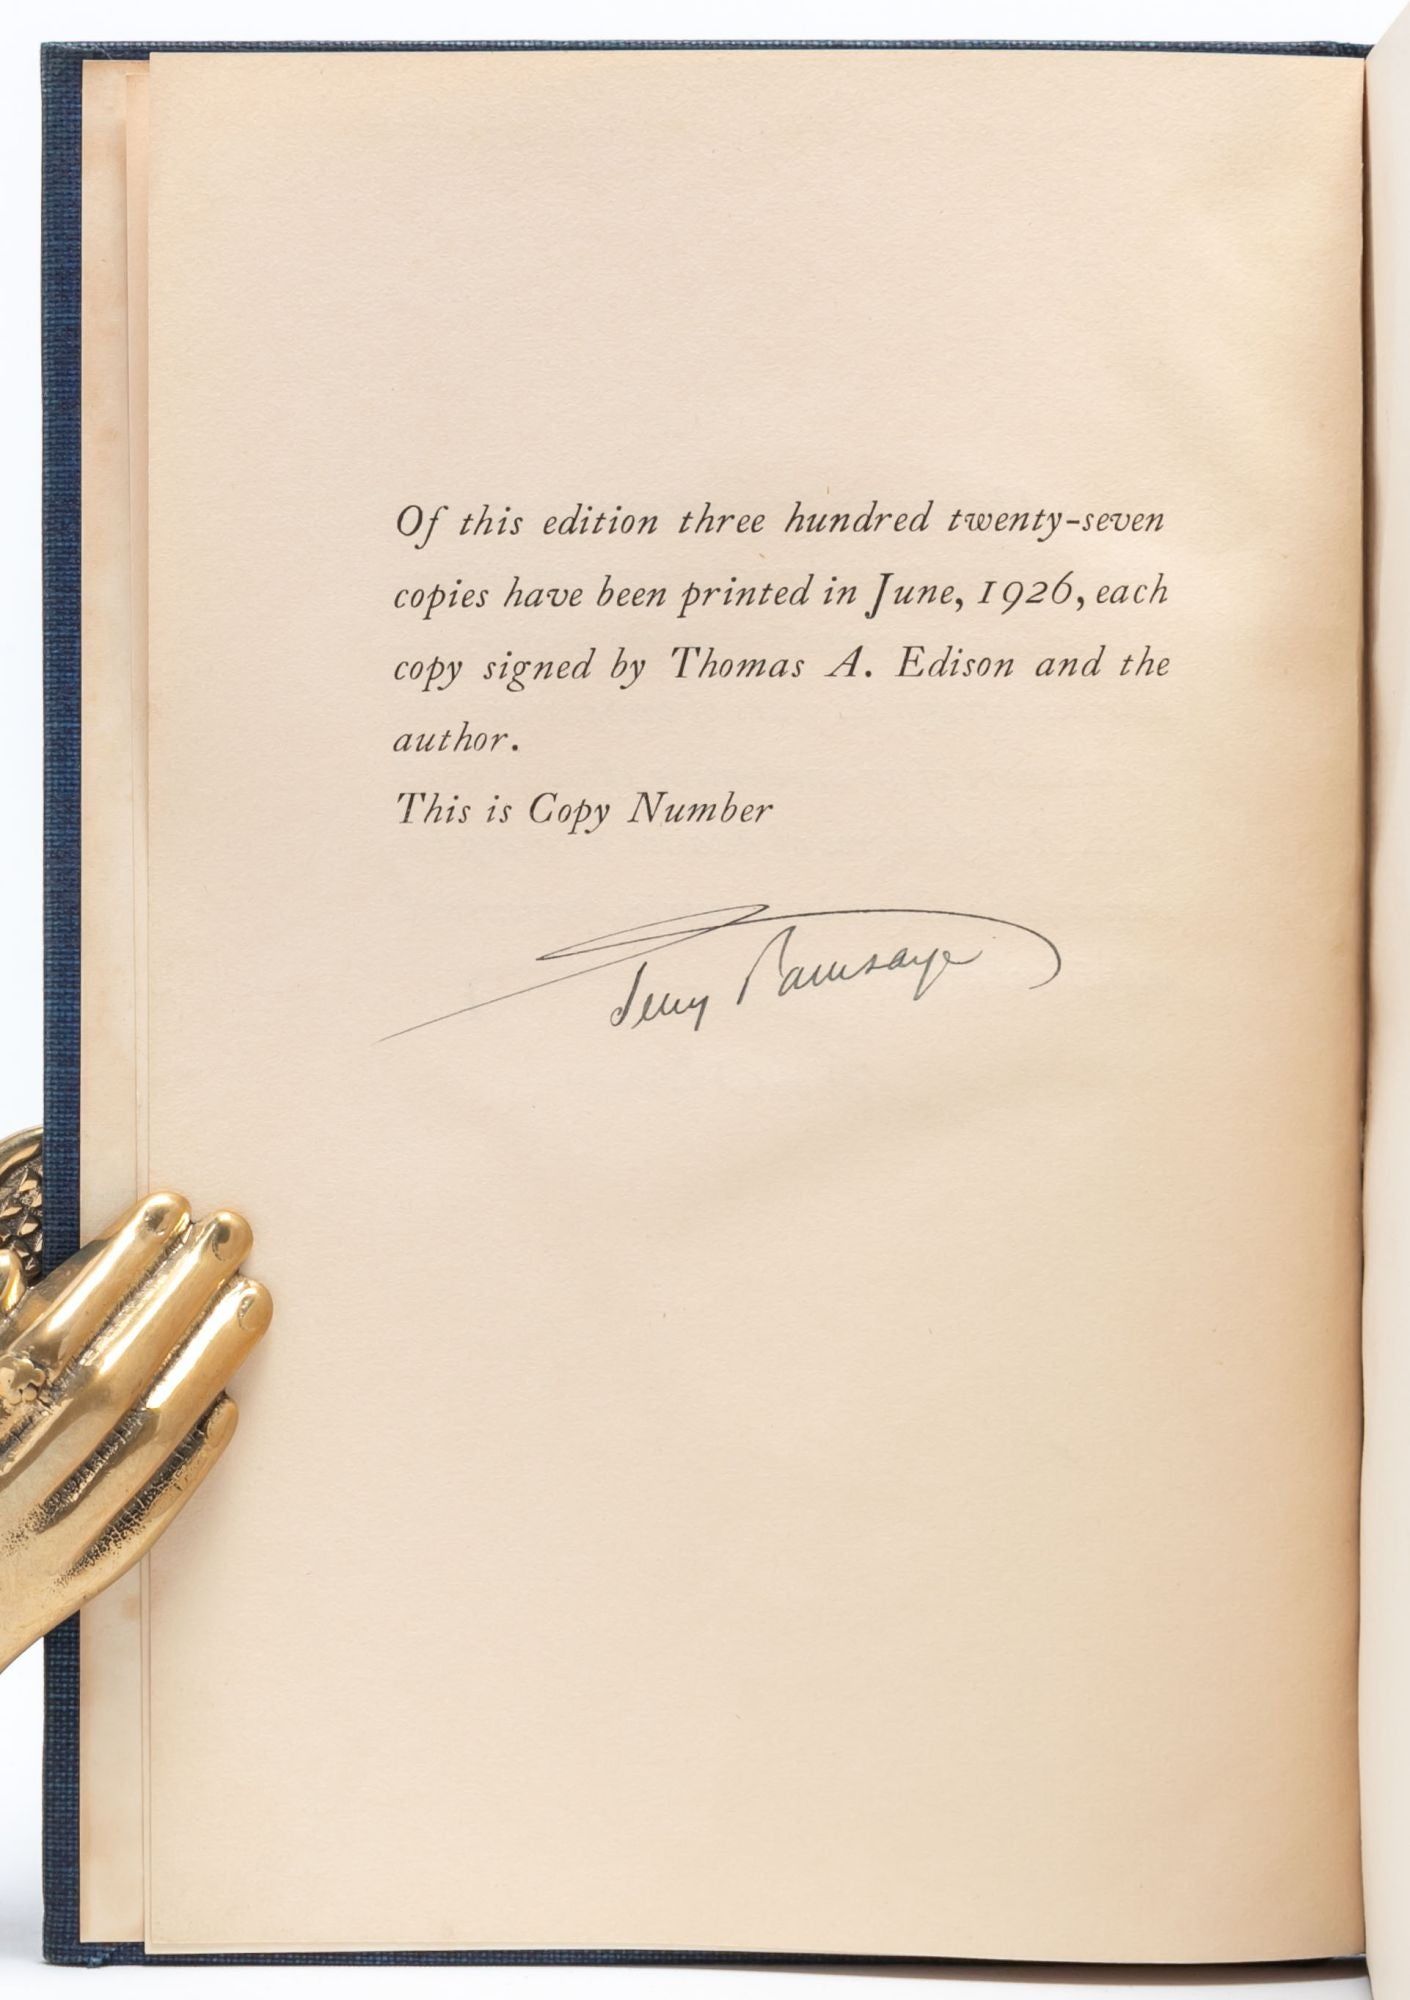 Of this edition three hundred twenty-seven
copies have been printed in June, 1926, each
copy signed by Thomas A. Edison and the
author.
This is Copy Number
Terry Ramsaye